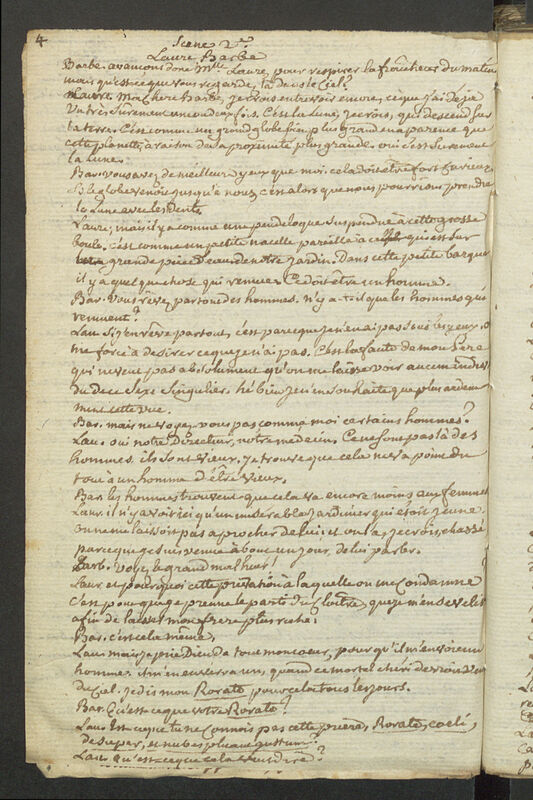 4
Scene 2e.
Laure Barbe
Barbe. avançons donc Mlle Laure, pour respirer la fraicheur du matin
mais qu'est ce que vous regardez, là dans le Ciel?
Laure. Ma chere Barbe, je crois entrevoir encore, ce que j'ai déja
vu très surement une ou deux fois. C'est la Lune, je crois, qui descend sur
la terre. C'est comme un grand globe bien plus grand en aparence que
cette planette, à raison de sa proximité plus grande. oui c'est surement
la Lune.
Bar. vous avez de meilleurs yeux que moi. cela doit etre fort curieux
si le globe venoit jusqu'à nous, c'est alors que nous pourrions prendre
la Lune avec les dents.
Laure, mais il y a comme une pendeloque suspendue à cette grosse
boule. c'est comme une petite nacelle pareille à celle qui est sur
grande piece d'eau de notre jardin. Dans cette petite barque
il y a quelque chose qui remue. Ce doit etre un homme.
Bar. Vous rêvez partout des hommes. n'y a-t-il que les hommes qui
remuent?
Lau. Si j'en rêve partout, c'est parceque je n'en ai pas sous les yeux. on
me force à desirer ce que je n'ai pas. C'est la faute de mon Pere
qui ne veut pas absolument qu'on me laisse voir aucun
du de ce sexe singulier. hé bien je n'en souhaite que plus ardem
ment cette vue.
Bar. mais ne voyez vous pas comme moi certains hommes?
Lau. oui notre Directeur, notre medecin. Ce ne sont pas là des
hommes. ils sont vieux. je trouve que cela ne va point du
tout à un homme d'être vieux.
Bar. les hommes trouvent que cela va encore moins aux femmes
Laur. il n'y avoit ici qu'un miserable jardinier qui etoit jeune
on ne me laissoit pas aprocher de lui, et on l'a, je crois, chassé
parceque j'etois venue à bout un jour, de lui parler.
Barb. voyez le grand malheur!
Laur. et pourquoi cette privation à laquelle on me Condamne
c'est pour que je prenne le parti du Cloitre, que je m'ensevelisse
afin de laisser mon frere plus riche.
Bar. c'est cela même.
Lau. mais je prie Dieu de tout mon coeur, pour qu'il m'envoie un
homme. il m'en enverra un, quand ce mortel cheri devroit venir
du Ciel. je dis mon Rorate pour cela tous les jours.
Bar. Qu'est ce que votre Rorate?
Lau. Est ce que tu ne connois pas cette priere, Rorate, coeli,
desuper, et nubes pluant justum?
Laur. qu'est ce que cela veut dire?